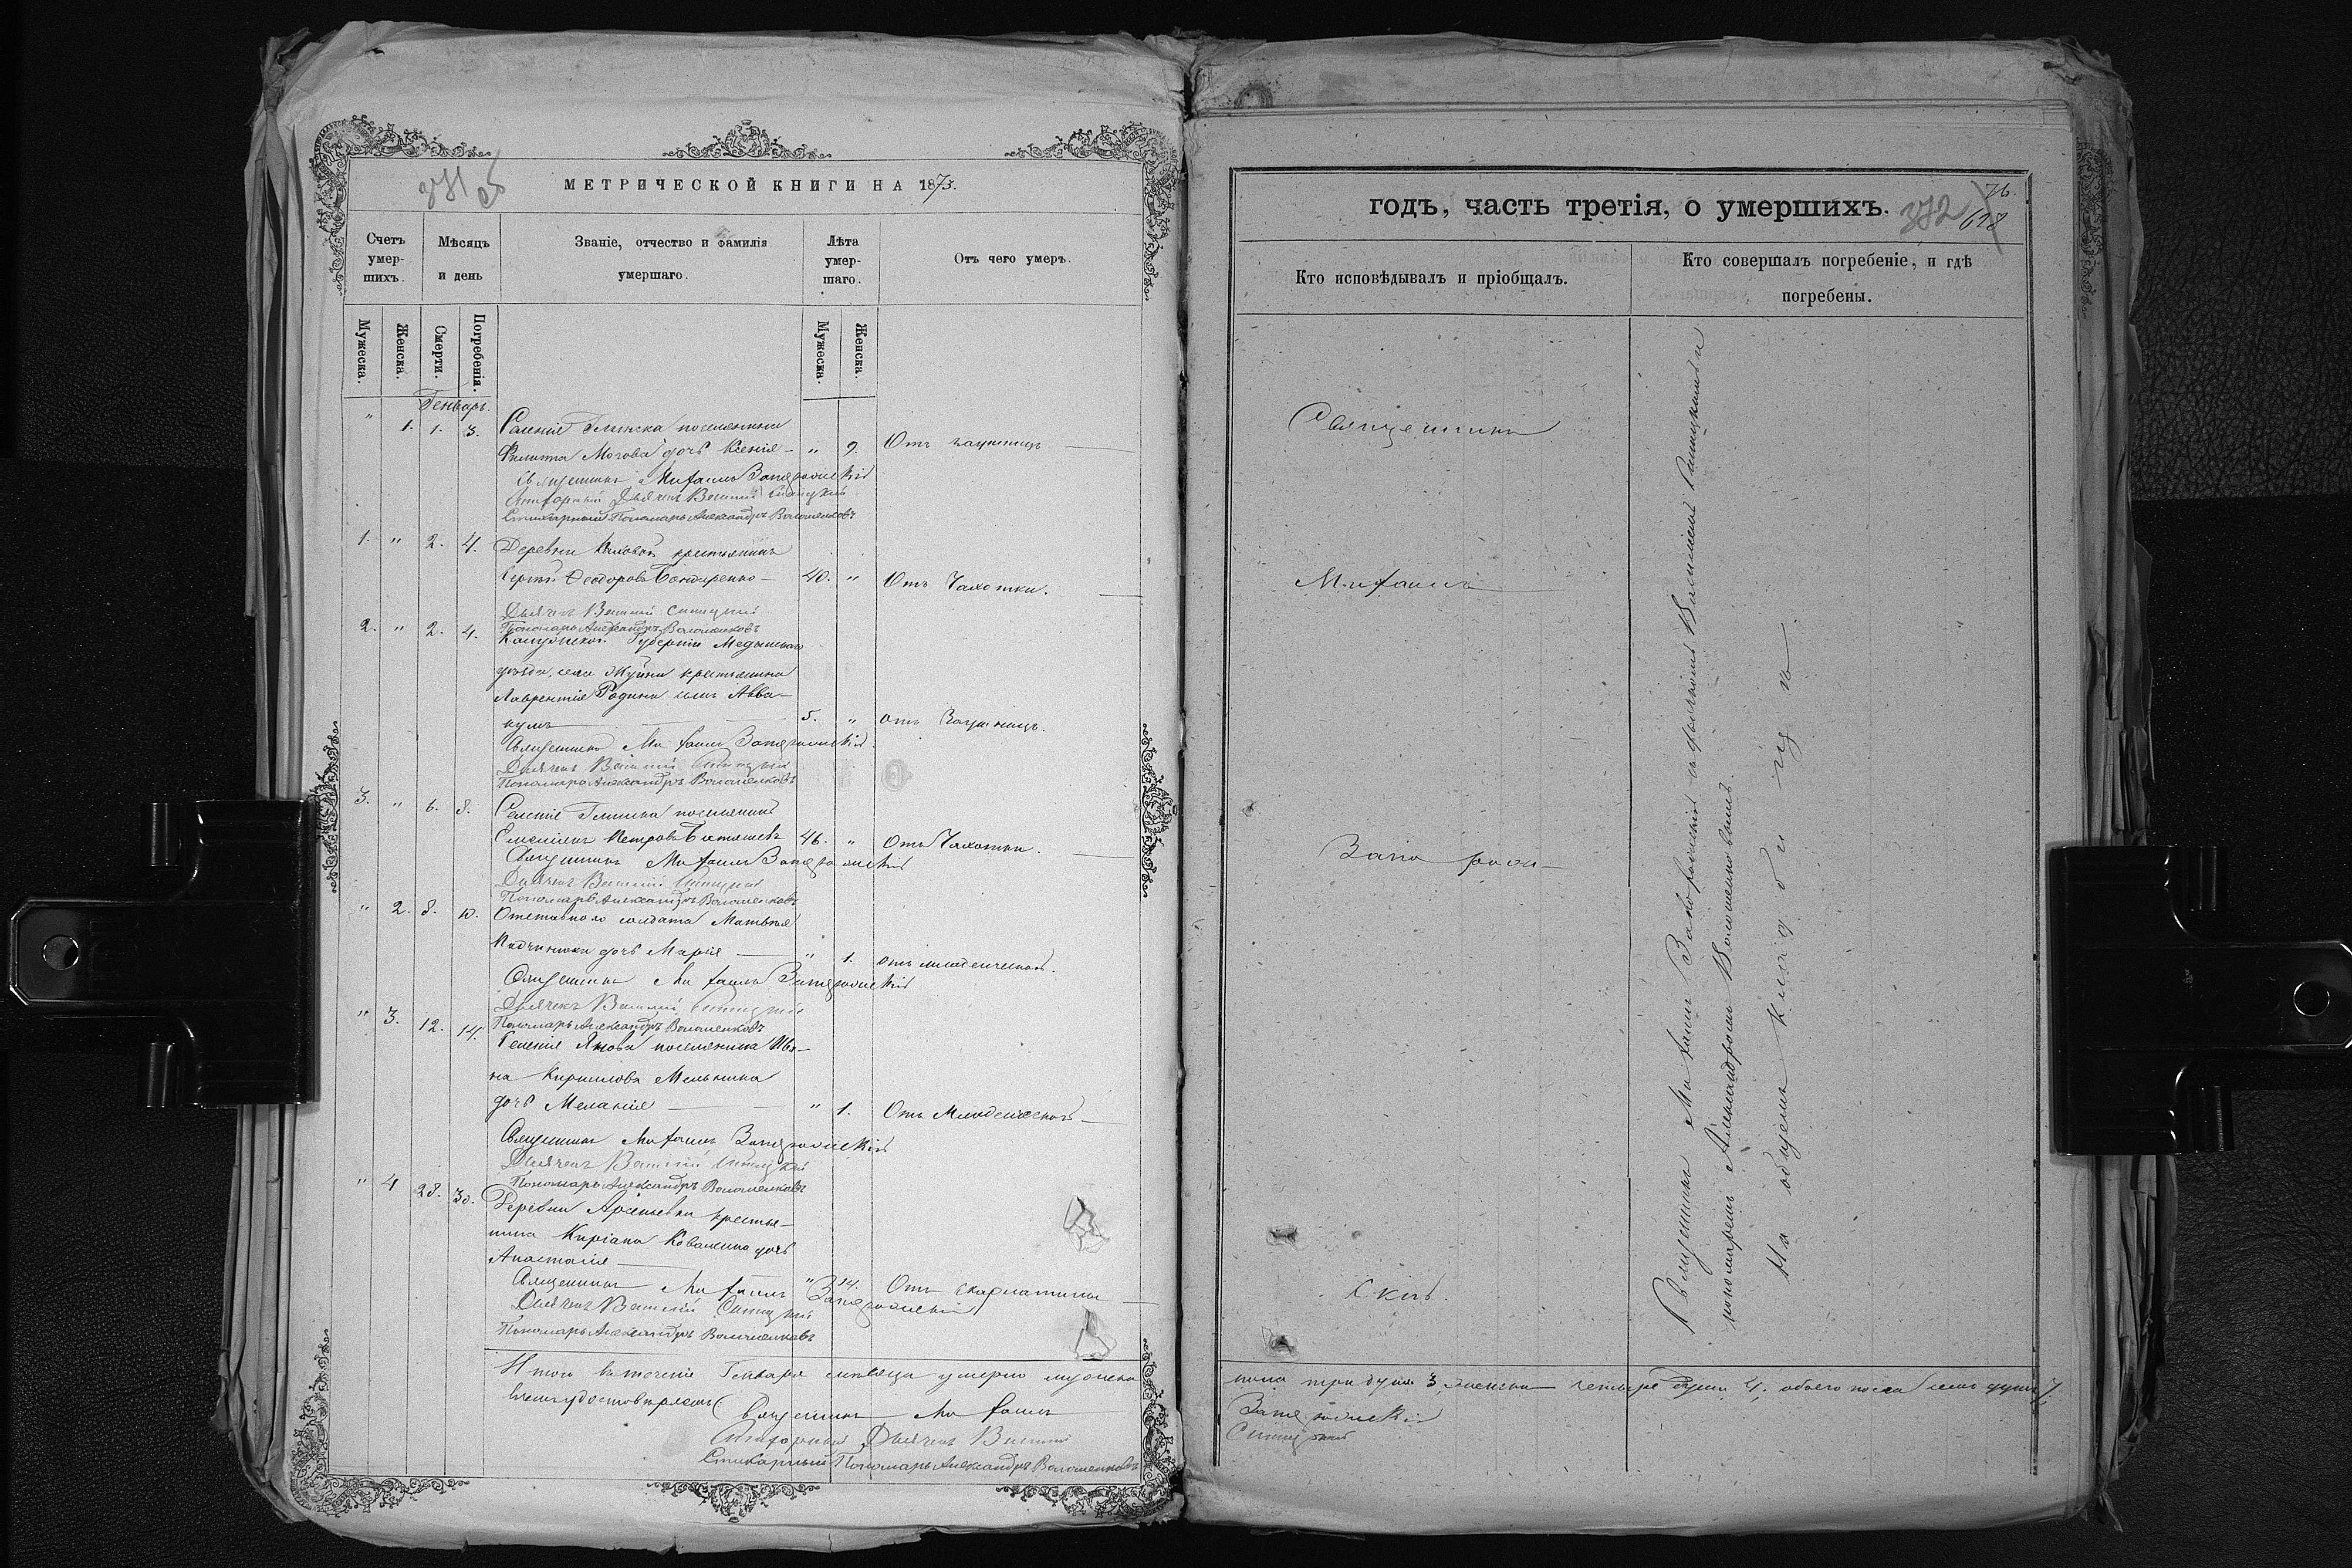 371 об
МЕТРИЧЕСКОЙ КНИГИ НА 1873.
Счетъ умер-
шихъ.
Мѣсяцъ
и день
Званіе, отчество и фамилія
умершаго.
Лѣта
умер-
шаго.
Отъ чего умеръ.
Мужеска.
Женска.
Смерти.
Погребенія.
Мужеска.
Женска.
Генварь.
" 1. 1. 3. Селенія Глинска поселянина
Филиппа дочь Ксенія " 9. Отъ заушницъ
Священникъ Михаилъ Запорожскій
Стихарный Дьячекъ Василій Синицкій
Стихарный Пономарь Александръ Волошенковъ
1. " 2. 4. Деревни крестьянинъ
Сергѣй Ѳеодоровъ Бондаренко 40. " Отъ Чахотки.
Дьячекъ Василій Синицкій
Пономарь Александръ Волошенковъ
2. " 2. 4. Калужской Губерніи Медынскаго
уѣзда, села крестьянина
Лаврентія Родина сынъ Авва-
кумъ 5. " отъ Заушницъ.
Священникъ Михаилъ Запорожскій
Дьячекъ Василій Синицкій
Пономарь Александръ Волошенковъ
3. " 6. 8. Селенія Глинска поселянинъ
Емеліанъ Петровъ 46. " Отъ Чахотки.
Священникъ Михаилъ Запорожскій
Дьячекъ Василій Синицкій
Пономарь Александръ Волошенковъ
" 2. 8. 10. Отставнаго солдата Матвѣя
дочь Марія " 1. отъ младенческой.
Священникъ Михаилъ Запорожскій
Дьячекъ Василій Синицкій
Пономарь Александръ Волошенковъ
" 3. 12. 14. Селенія Янова поселянина Ива-
на Кириллова Мельника
дочь Меланія " 1. Отъ Младенческой
Священникъ Михаилъ Запорожскій
Дьячекъ Василій Синицкій
Пономарь Александръ Волошенковъ
" 4 28. 30. Деревни крестья-
нина Киріана дочь
Анастасія " 14. Отъ скарлатины
Священникъ Михаилъ Запорожскій
Дьячекъ Василій Синицкій
Пономарь Александръ Волошенковъ
Итого въ теченіе Генваря мѣсяца умерло мужска
въ чемъ удостовѣряемъ: Священникъ Михаилъ
Стихарный Дьячекъ Василій
Стихарный Пономарь Александръ Волошенковъ
годъ, часть третія, о умершихъ.
372
628
Кто исповѣдывалъ и пріобщалъ.
Кто совершалъ погребеніе, и гдѣ
погребены.
Священникъ
Михаилъ
Запорож-
скій.
Священникъ Михаилъ Запорожскій съ дьячкомъ Василіемъ Синицкимъ и
пономаремъ Александромъ Волошенковымъ.
На общемъ кладбищѣ
пола три души 3, женска четыре души 4, обоего пола семь душъ 7
Запорожскій
Синицкій